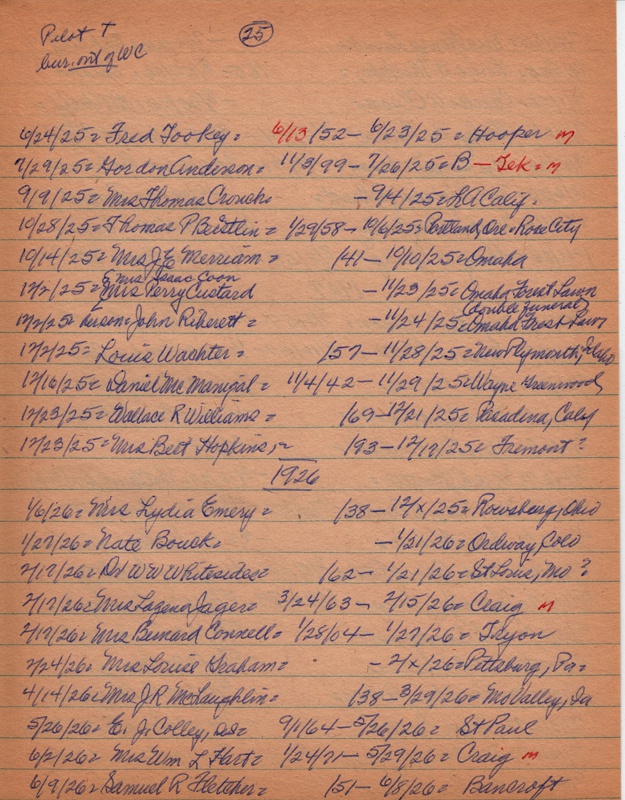 Pilot T
bur. out of WC
25
6/24/25= Fred Tookey= 6/13/52 - 6/23/25= Hooper m
7/29/25= Gordon Anderson= 11/3/99 - 7/26/25= B - Tek = m
9/9/25= Mrs Thomas Crouch= - 9/4/25= LA Calif.
10/28/25= Thomas P Beistlin= 1/29/58 - 10/6/25= Portland, Ore = Rose City
10/14/25= Mrs J.E. Merriam= /41 - 10/10/25= Omaha
& Mrs Isaac Coon
12/2/25= Mrs Perry Custard - 11/23/25= Omaha Forest Lawn
(double funeral)
12/2/25= John Riherett= - 11/24/25= Omaha Forest Lawn
12/2/25= Louis Wachter= /57 - 11/28/25= New Plymonth, Idaho
12/16/25= Daniel McManigal= 11/4/42 - 11/29/25= Wayne Greenwood
12/23/25= Wallace R Williams= /69 - 12/21/25= Pasadena, Calif
12/23/25= Mrs Bert Hopkins, = /93 - 12/17/25= Fremont?
1926
1/6/26= Mrs Lydia Emery= /38 - 12/x/25= Rowsburg, Ohio
1/27/26= Nate Bouck= - 1/21/26= Ordway, Colo
2/17/26= Dr W W Whitesides= /62 - 1/21/26= St Louis, Mo ?
2/17/26= Mrs Jager= 3/24/63 - 2/15/26= Craig m
2/17/26= Mrs Bernard Connell= 1/28/04 - 1/27/26= Tryon
2/24/26= Mrs Louise Graham= - 2/x/26= Pittsburg, Pa=
4/14/26= Mrs J.R. McLaughlin= /38 - 3/29/26= Mo Valley, Ia
5/26/26= E. J. Colley, = 9/1/64 - 5/26/26= St Paul
6/2/26= Mrs Wm L Hart= 1/24/71 - 5/29/26= Craig m
6/9/26= Samuel R Fletcher= /51 - 6/8/26= Bancroft